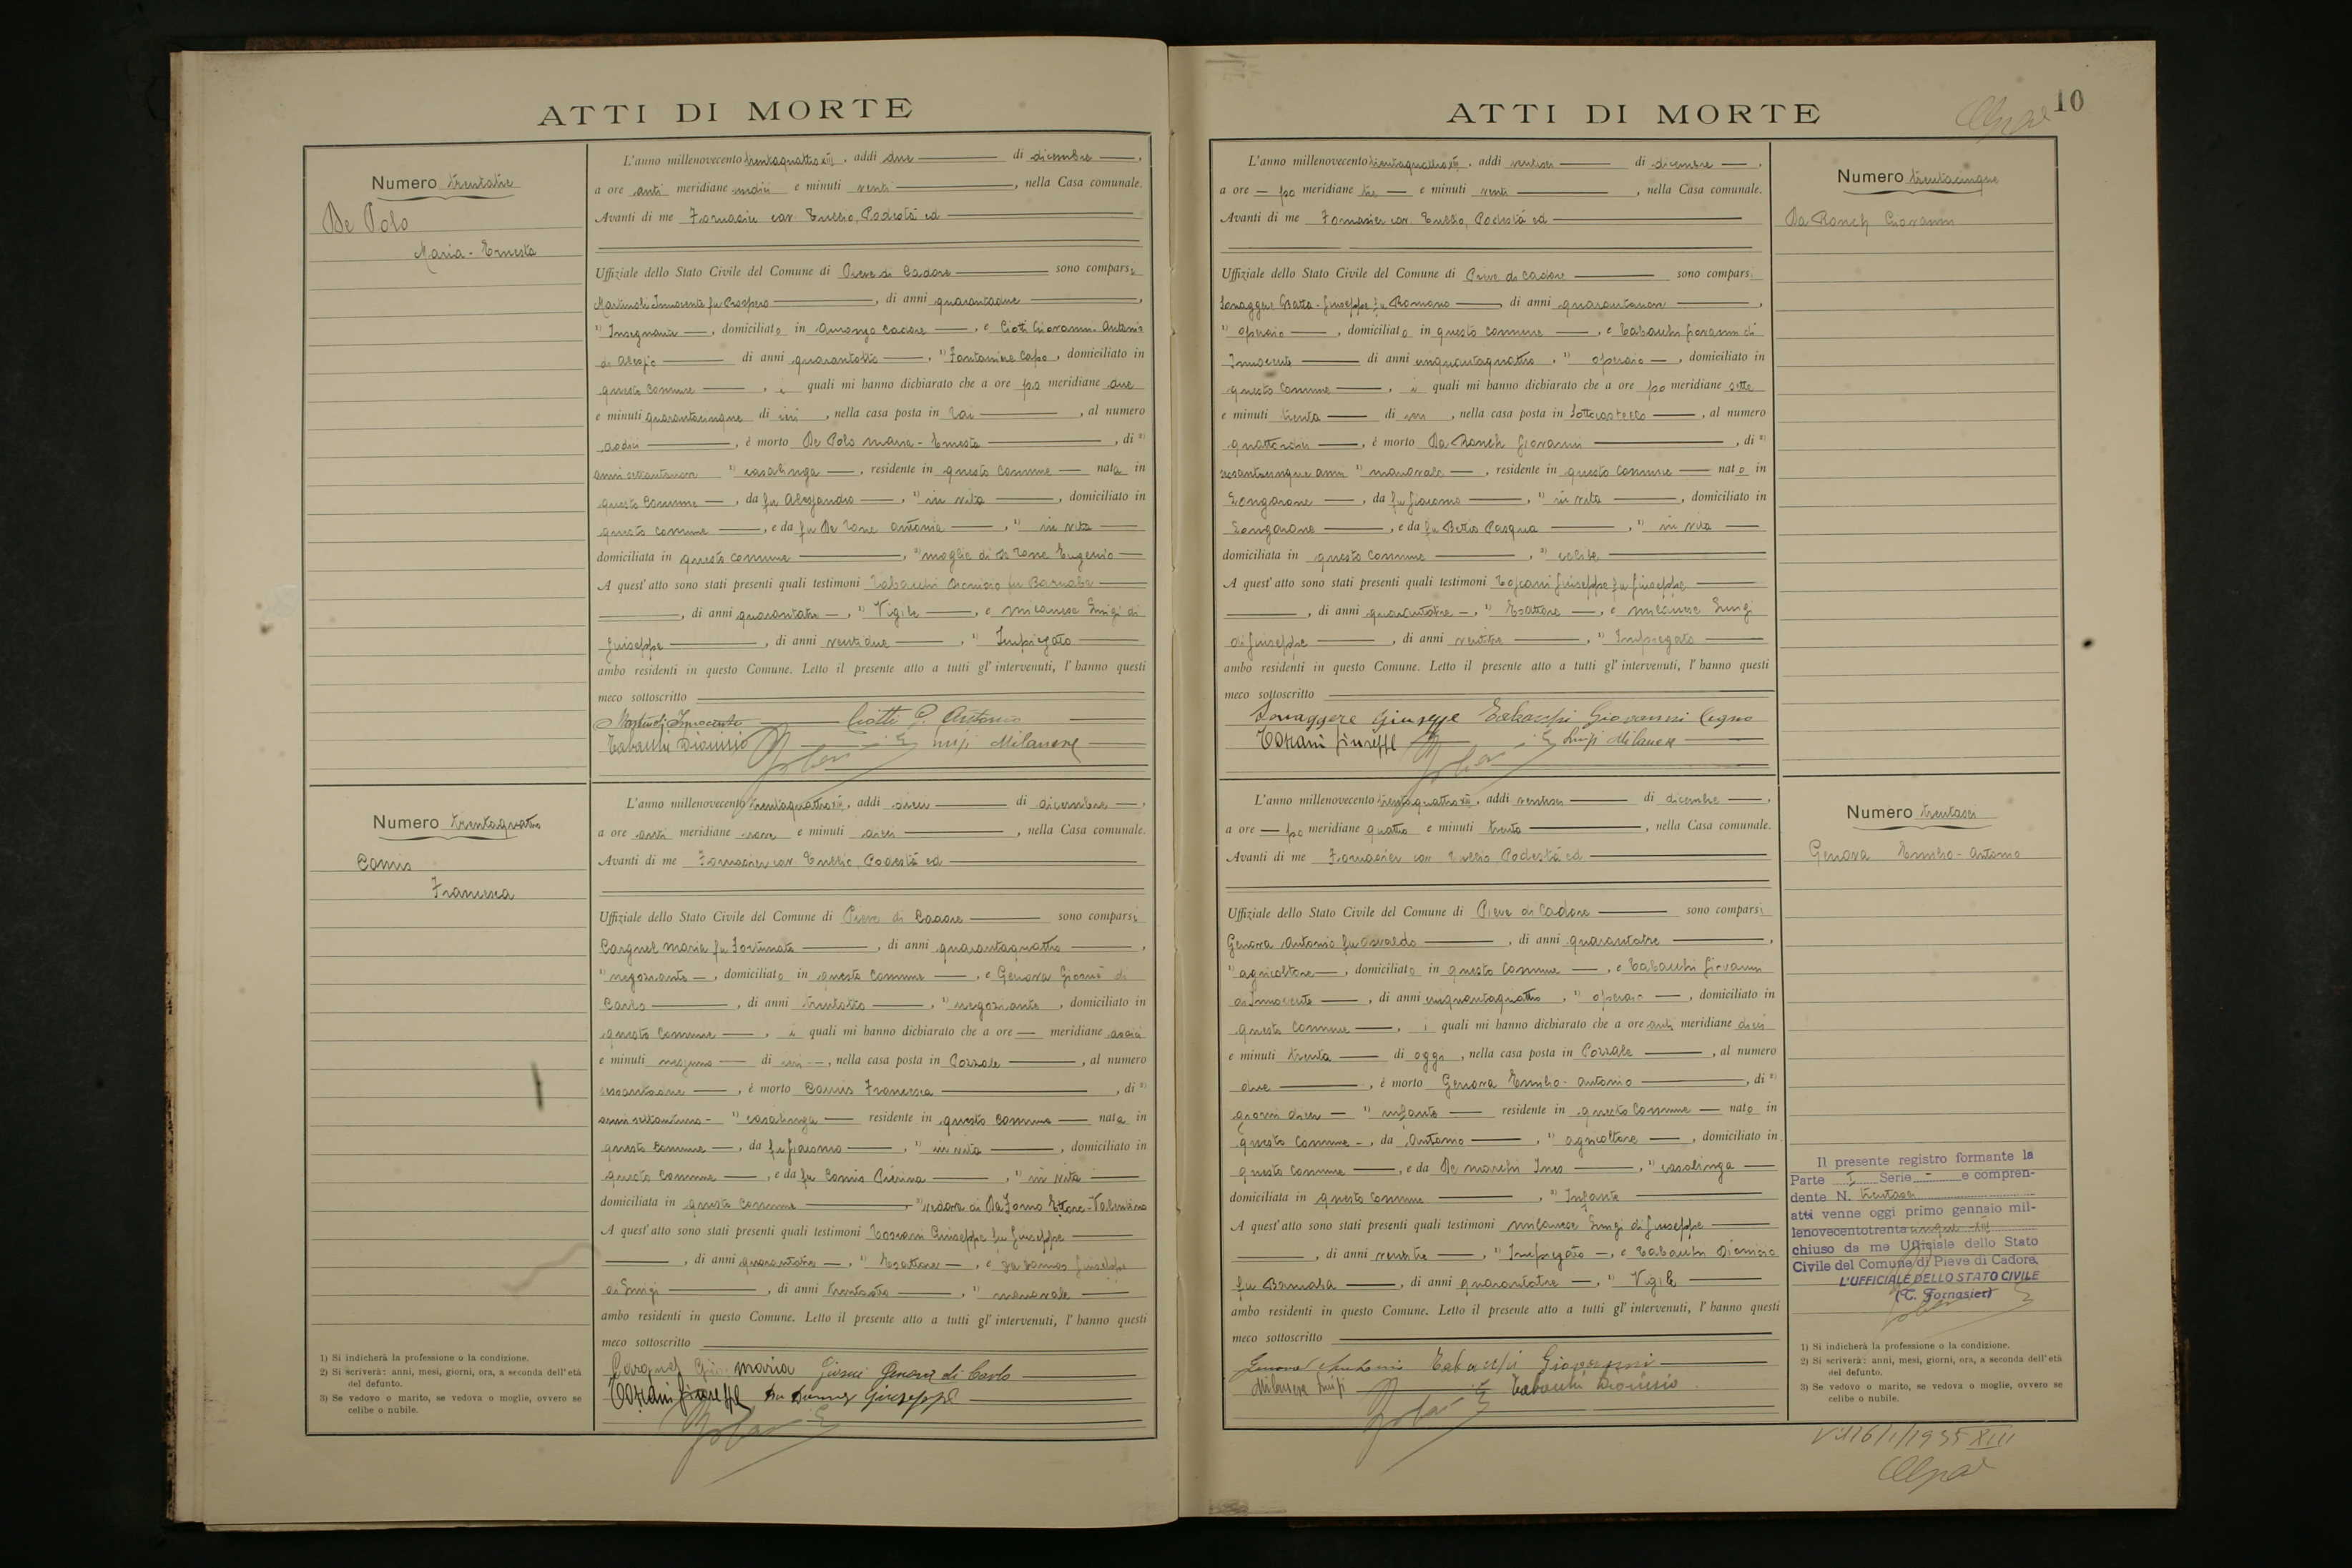 ATTI DI MORTE
Numero trentatre
De Polo
Maria - Ernesta
L'anno millenovecento trentaquattro XIII, addì due di dicembre,
a ore anti meridiane undici e minuti venti, nella Casa comunale.
Avanti di me Fornasier cav. Tullio, Podestà ed
Uffiziale dello Stato Civile del Comune di Pieve di Cadore sono comparsi
Martinoli Innocente fu Prospero, di anni quarantadue,
1) Insegnante, domiciliato in Auronzo Cadore, e Ciotti Giovanni-Antonio
di Alessio di anni quarantotto, 1) Fontaniere Capo, domiciliato in
questo Comune, i quali mi hanno dichiarato che a ore po meridiane due
e minuti quarantacinque di ieri, nella casa posta in Tai, al numero
dodici, è morto De Polo Maria - Ernesta, di 2)
anni sessantanove 1) casalinga, residente in questo Comune nata in
questo Comune, da fu Alessandro, 1) in vita, domiciliato in
questo Comune, e da fu De Zorre Antonia, 1) in vita
domiciliata in questo Comune, 3) moglie di De Zorre Eugenio
A quest'atto sono stati presenti quali testimoni Tabacchi Dionisio fu Barnaba
, di anni quarantatre, 1) Vigile, e Milanese Luigi di
Giuseppe, di anni ventidue, 1) Impiegato
ambo residenti in questo Comune. Letto il presente atto a tutti gl'intervenuti, l'hanno questi
meco sottoscritto
Martinoli Innocente Ciotti G. Antonio
Tabacchi Dionisio Luigi Milanese
Numero trentaquattro
Comis
Francesca
L'anno millenovecento trentaquattro XIII, addì dieci di dicembre,
a ore anti meridiane nove e minuti dieci, nella Casa comunale.
Avanti di me Fornasier cav. Tullio, Podestà ed
Uffiziale dello Stato Civile del Comune di Pieve di Cadore sono comparsi
Cargnel Maria fu Fortunato, di anni quarantaquattro,
1) negoziante, domiciliato in questo Comune, e Genova Giosuè di
Carlo, di anni trentotto, 1) negoziante, domiciliato in
questo Comune, i quali mi hanno dichiarato che a ore meridiane dodici
e minuti nessuno di ieri, nella casa posta in Pozzale, al numero
sessantadue, è morto Comis Francesca, di 2)
anni settantuno 1) casalinga residente in questo Comune nata in
questo Comune, da fu Giacomo, 1) in vita, domiciliato in
questo Comune, e da fu Comis Pierina, 1) in vita
domiciliata in questo Comune 3) vedova di Da Forno Ettore-Valentino
A quest'atto sono stati presenti quali testimoni Toscani Giuseppe fu Giuseppe
, di anni quarantatre, 1) Esattore, e Giuseppe
di Luigi, di anni trentotto, 1) manovale
ambo residenti in questo Comune. Letto il presente atto a tutti gl'intervenuti, l'hanno questi
meco sottoscritto
Cargnel Maria Giosuè Genova di Carlo
Toscani Giuseppe Giuseppe
1) Si indicherà la professione o la condizione.
2) Si scriverà: anni, mesi, giorni, ora, a seconda dell'età
del defunto.
3) Se vedovo o marito, se vedova o moglie, ovvero se
celibe o nubile.
ATTI DI MORTE
10
L'anno millenovecento trentaquattro XIII, addì ventisei di dicembre,
a ore po meridiane tre e minuti venti, nella Casa comunale.
Avanti di me Fornasier cav. Tullio, Podestà ed
Uffiziale dello Stato Civile del Comune di Pieve di Cadore sono comparsi
Giuseppe fu Romano di anni quarantanove,
1) operaio, domiciliato in questo Comune, e Tabacchi Giovanni di
Innocente di anni cinquantaquattro, 1) operaio, domiciliato in
questo Comune, i quali mi hanno dichiarato che a ore po meridiane sette
e minuti trenta di ieri, nella casa posta in Sottocastello, al numero
quattordici, è morto Da Ronch Giovanni, di 2)
sessantacinque anni 1) manovale, residente in questo Comune nato in
Longarone, da fu Giacomo, 1) in vita, domiciliato in
Longarone, e da fu Bettio Pasqua, 1) in vita
domiciliata in questo Comune, 3) celibe
A quest'atto sono stati presenti quali testimoni Toscani Giuseppe fu Giuseppe
, di anni quarantatre, 1) Esattore, e Milanese Luigi
di Giuseppe, di anni ventitre, 1) Impiegato
ambo residenti in questo Comune. Letto il presente atto a tutti gl'intervenuti, l'hanno questi
meco sottoscritto
Giuseppe Tabacchi Giovanni
Toscani Giuseppe Luigi Milanese
Numero trentacinque
Da Ronch Giovanni
L'anno millenovecento trentaquattro XIII, addì ventisei di dicembre,
a ore po meridiane quattro e minuti trenta, nella Casa comunale.
Avanti di me Fornasier cav Tullio Podestà ed
Uffiziale dello Stato Civile del Comune di Pieve di Cadore sono comparsi
Genova Antonio fu Osvaldo, di anni quarantatre,
1) agricoltore, domiciliato in questo Comune, e Tabacchi Giovanni
di Innocente, di anni cinquantaquattro, 1) operaio, domiciliato in
questo Comune, i quali mi hanno dichiarato che a ore anti meridiane dieci
e minuti trenta di oggi, nella casa posta in Pozzale, al numero
due, è morto Genova Emilio - Antonio, di 2)
giorni dieci 1) infante residente in questo Comune nato in
questo Comune, da Antonio, 1) agricoltore, domiciliato in
questo Comune, e da De Marchi Ines, 1) casalinga
domiciliata in questo Comune, 3) Infante
A quest'atto sono stati presenti quali testimoni Milanese Luigi di Giuseppe
, di anni ventitre, 1) Impiegato, e Tabacchi Dionisio
fu Barnaba, di anni quarantatre, 1) Vigile
ambo residenti in questo Comune. Letto il presente atto a tutti gl'intervenuti, l'hanno questi
meco sottoscritto
Genova Antonio Tabacchi Giovanni
Milanese Luigi Tabacchi Dionisio
Numero trentasei
Genova Emilio - Antonio
Il presente registro formante la
Parte I Serie e compren-
dente N. trentasei
atti venne oggi primo gennaio mil-
lenovecentotrentacinque XIII
chiuso da me Ufficiale dello Stato
Civile del Comune di Pieve di Cadore.
L'UFFICIALE DELLO STATO CIVILE
(T. Fornasier)
1) Si indicherà la professione o la condizione.
2) Si scriverà: anni, mesi, giorni, ora, a seconda dell'età
del defunto.
3) Se vedovo o marito, se vedova o moglie, ovvero se
celibe o nubile.
1935 XIII